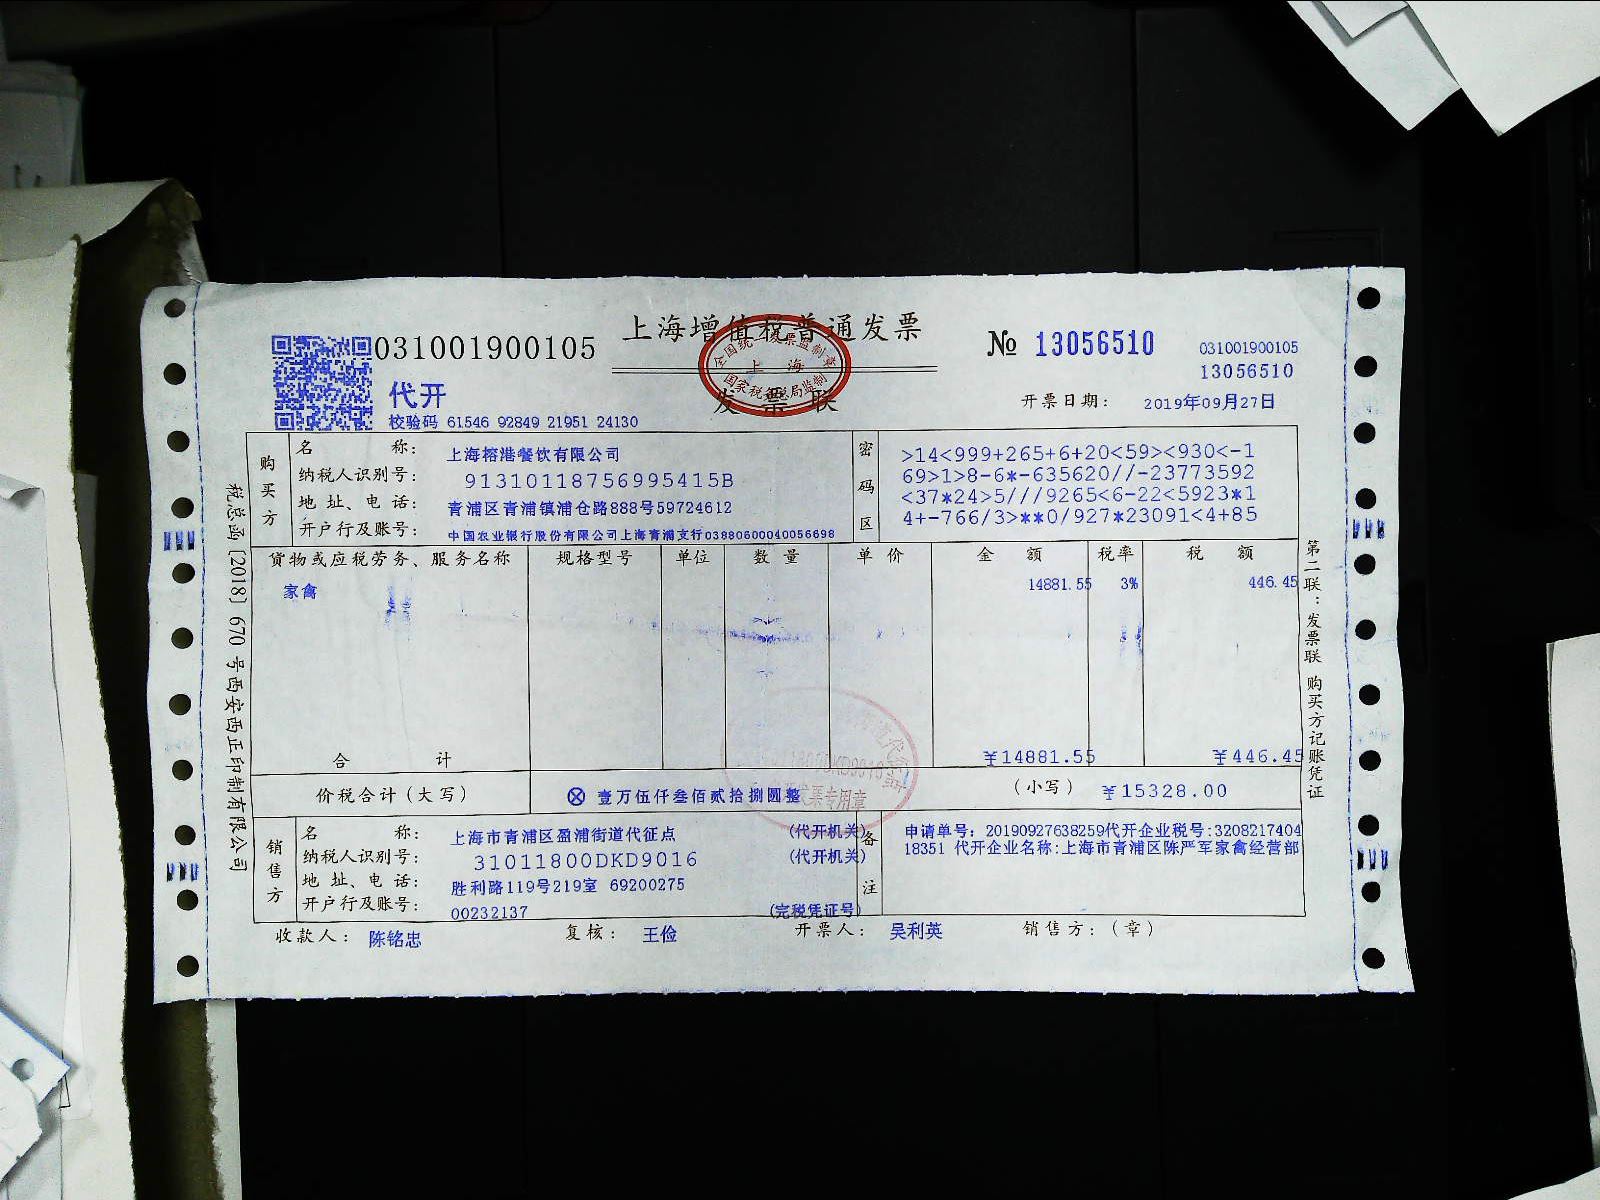 上海增值税普通发票
发票联
全国统一发票监制章
上海
国家税务总局监制
031001900105
代开
校验码 61546 92849 21951 24130
№ 13056510
031001900105
13056510
开票日期： 2019年09月27日
购买方
名称： 上海榕港餐饮有限公司
纳税人识别号： 91310118756995415B
地址、电话： 青浦区青浦镇浦仓路888号59724612
开户行及账号： 中国农业银行股份有限公司上海青浦支行03880600040056698
密码区
>14<999+265+6+20<59><930<-1
69>1>8-6*-635620//-23773592
<37*24>5///9265<6-22<5923*1
4+-766/3>**0/927*23091<4+85
货物或应税劳务、服务名称 规格型号 单位 数量 单价 金额 税率 税额
家禽 14881.55 3% 446.45
合计 ¥14881.55 ¥446.45
价税合计（大写） ⊗ 壹万伍仟叁佰贰拾捌圆整 （小写） ¥15328.00
销售方
名称： 上海市青浦区盈浦街道代征点 (代开机关)
纳税人识别号： 31011800DKD9016 (代开机关)
地址、电话： 胜利路119号219室 69200275
开户行及账号： 00232137 (完税凭证号)
备注
申请单号：20190927638259代开企业税号:3208217404
18351 代开企业名称:上海市青浦区陈严军家禽经营部
收款人： 陈铭忠 复核： 王俭 开票人： 吴利英 销售方：（章）
税总函[2018] 670 号西安西正印制有限公司
第二联：发票联 购买方记账凭证
发票专用章